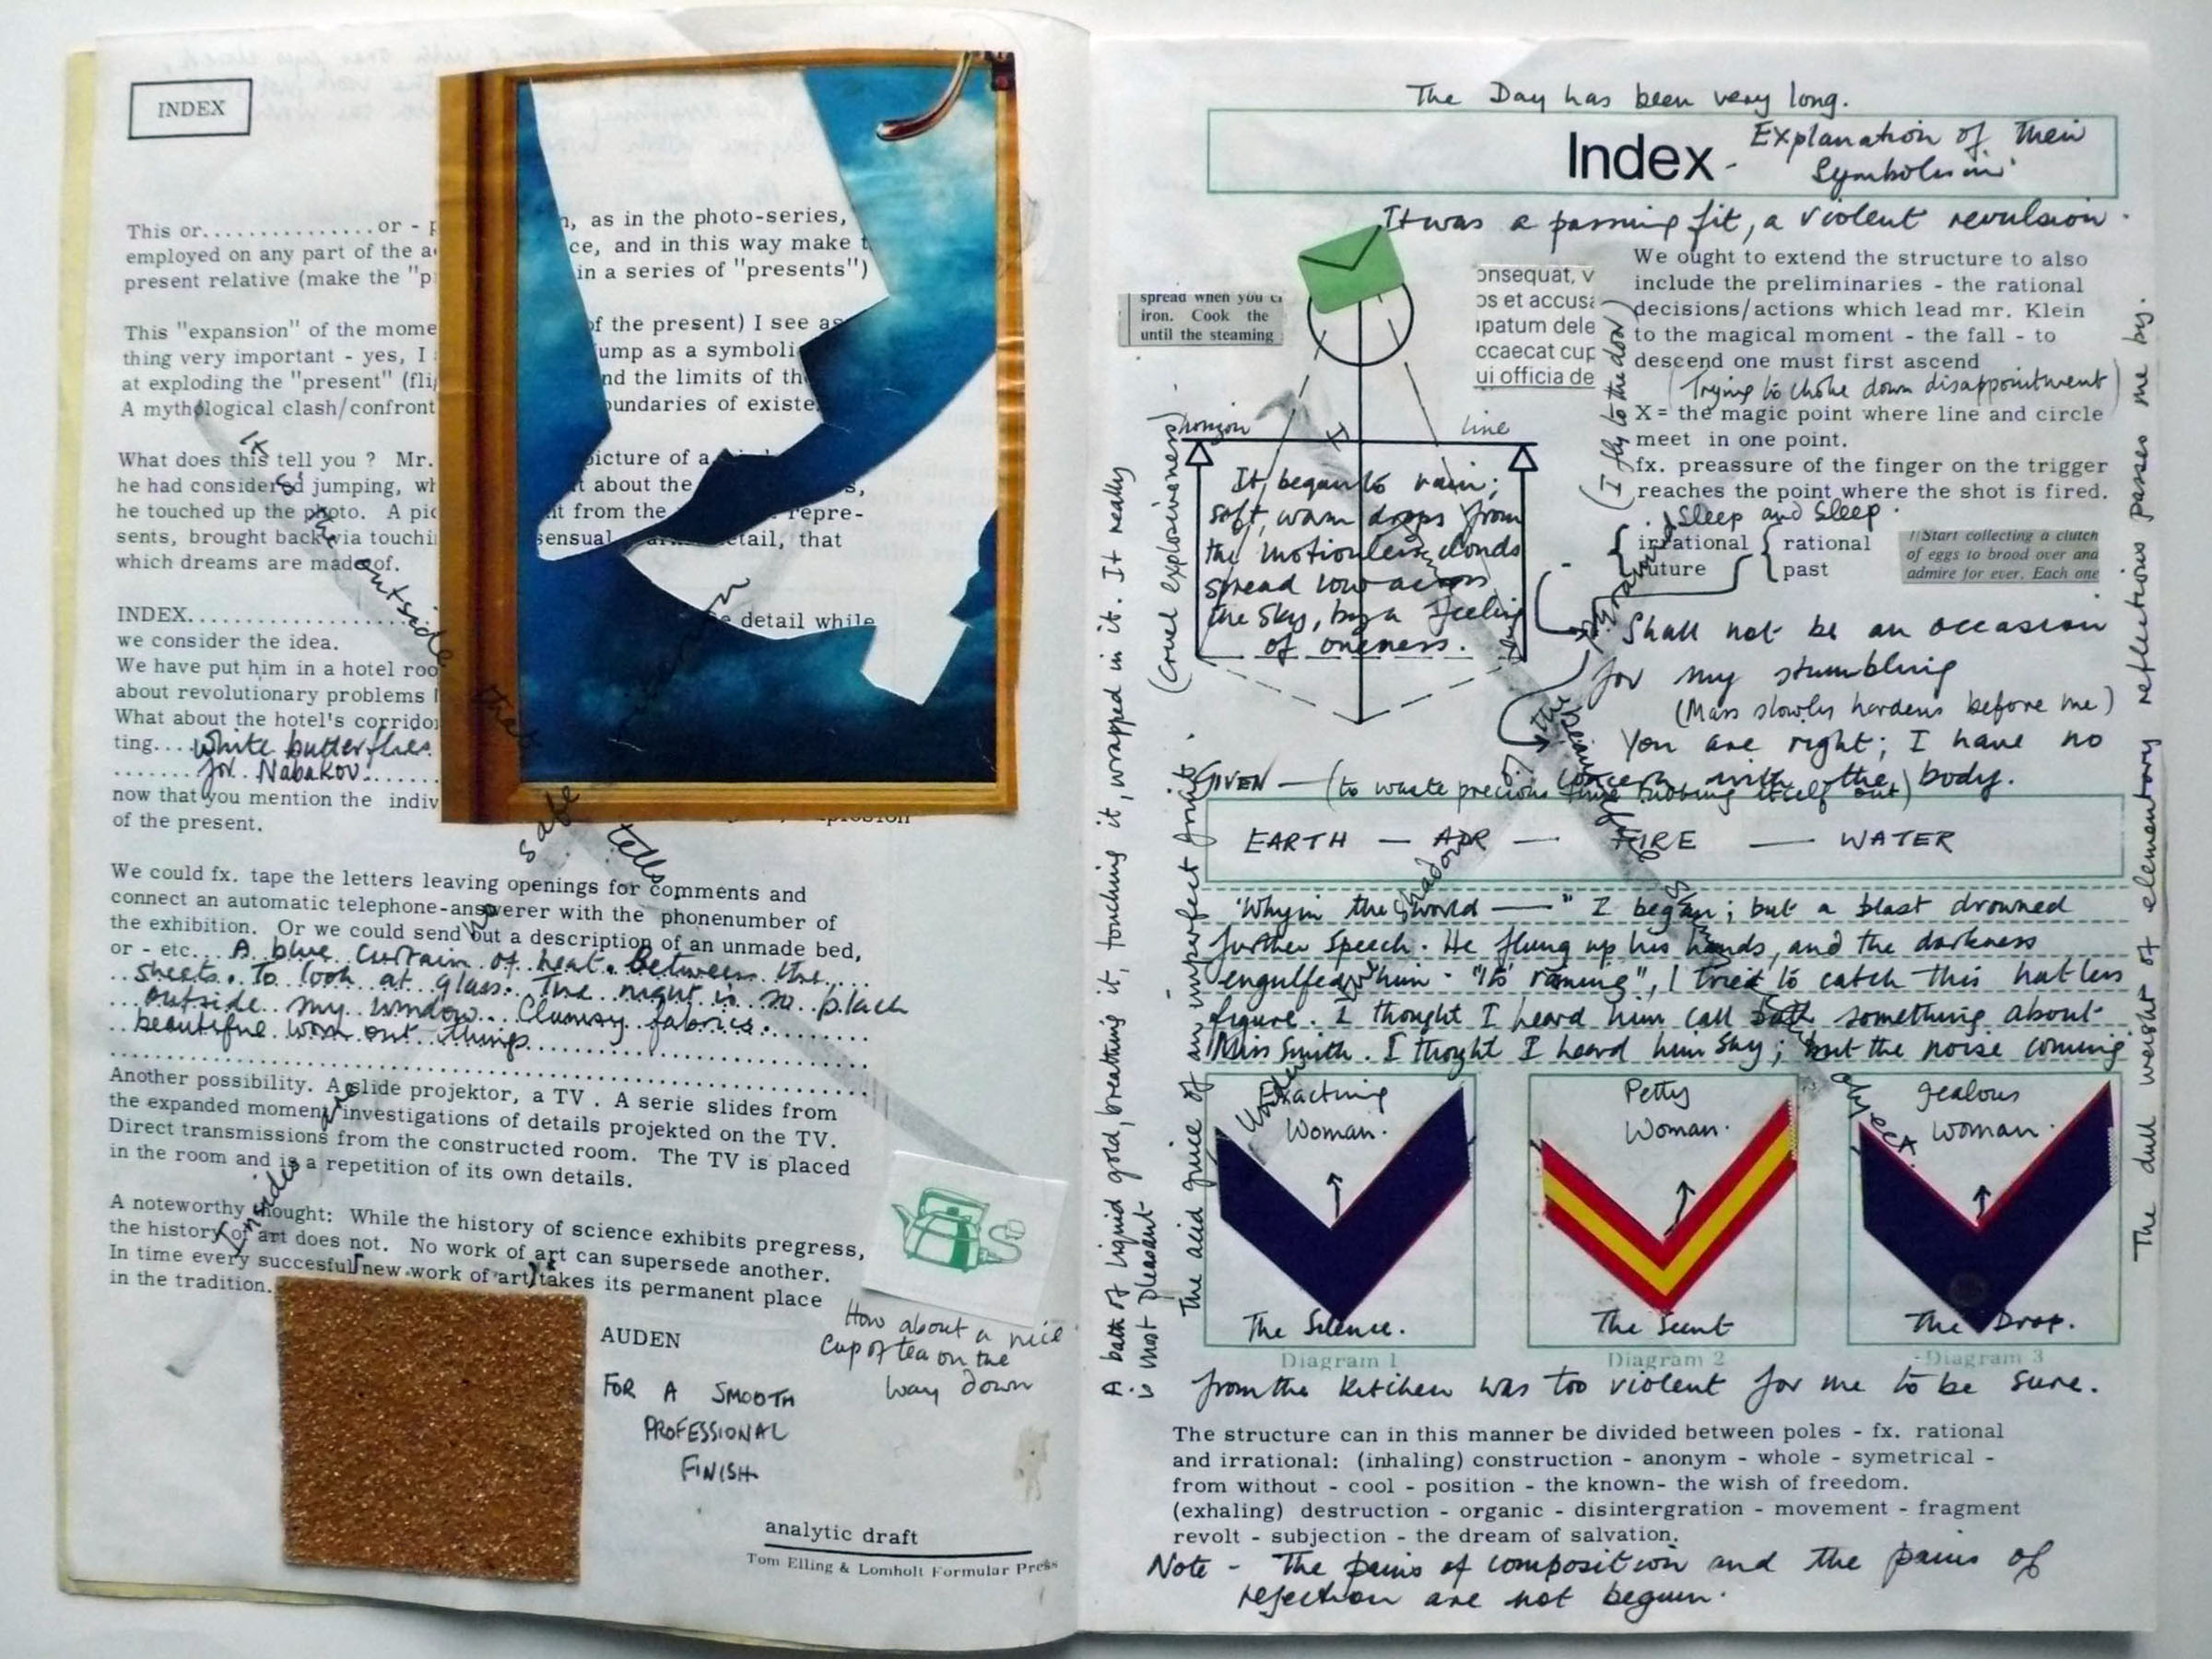 INDEX
This or...............or - p
employed on any part of the a
present relative (make the "p
, as in the photo-series,
ce, and in this way make t
in a series of "presents")
This "expansion" of the mome
thing very important - yes, I
at exploding the "present" (fli
A mythological clash/confront
of the present) I see as
ump as a symboli
nd the limits of th
oundaries of existe
What does this tell you ? Mr.
he had considered jumping, wh
he touched up the photo. A pic
sents, brought back via touchi
which dreams are made of.
picture of a
t about the
nt from the repre-
sensual etail, that
INDEX......................
we consider the idea.
We have put him in a hotel roo
about revolutionary problems
What about the hotel's corridor
ting.... White butterflies
....... for Nabakov.......
now that you mention the indiv
of the present.
detail while
It is the outside that
safe tells
We could fx. tape the letters leaving openings for comments and
connect an automatic telephone-answerer with the phonenumber of
the exhibition. Or we could send out a description of an unmade bed,
or - etc... A blue curtain of heat. Between the
sheets. To look at glass. The night is so black
outside my window. Clumsy fabrics.
beautiful worn out things
Another possibility. A slide projektor, a TV . A serie slides from
the expanded moment, investigations of details projekted on the TV.
Direct transmissions from the constructed room. The TV is placed
in the room and is a repetition of its own details.
A noteworthy thought: While the history of science exhibits pregress,
the history of art does not. No work of art can supersede another.
In time every succesful new work of art takes its permanent place
in the tradition.
AUDEN
FOR A SMOOTH
PROFESSIONAL
FINISH
How about a nice
cup of tea on the
way down
analytic draft
Tom Elling & Lomholt Formular Press
The Day has been very long.
Index - Explanation of Their
Symbolism
It was a passing fit, a violent revulsion.
spread when you c
iron. Cook the
until the steaming
onsequat, v
os et accusa
ipatum dele
ccaecat cup
ui officia de
We ought to extend the structure to also
include the preliminaries - the rational
decisions/actions which lead mr. Klein
to the magical moment - the fall - to
descend one must first ascend
(Trying to choke down disappointment)
X = the magic point where line and circle
meet in one point.
fx. preassure of the finger on the trigger
reaches the point where the shot is fired.
(I fly to the door)
Sleep and Sleep.
irrational rational
future past
!!Start collecting a clutch
of eggs to brood over and
admire for ever. Each one
horizon line
X
It began to rain;
soft, warm drops from
the motionless clouds
spread low across
the sky, by a feeling
of oneness.
Shall not be an occasion
for my stumbling
(Mass slowly hardens before me)
You are right; I have no
concern with the body.
GIVEN — (to waste precious time rubbing itself out)
EARTH — AIR — FIRE — WATER
"Why in the world —" I began; but a blast drowned
further speech. He flung up his hands, and the darkness
engulfed him. "It's raining", I tried to catch this hatless
figure. I thought I heard him call out something about
Miss Smith. I thought I heard him say; but the noise coming
Exacting
Woman.
The Silence.
Diagram 1
Petty
Woman.
The Scent
Diagram 2
Jealous
Woman.
The Drop.
Diagram 3
from the kitchen was too violent for me to be sure.
The structure can in this manner be divided between poles - fx. rational
and irrational: (inhaling) construction - anonym - whole - symetrical -
from without - cool - position - the known- the wish of freedom.
(exhaling) destruction - organic - disintergration - movement - fragment
revolt - subjection - the dream of salvation.
Note - The pains of composition and the pains of
rejection are not begun.
A bath of liquid gold, breathing it, touching it, wrapped in it. It really
is most pleasant.
(Cruel explosiveness)
The acid juice of an imperfect fruit.
The dull weight of elementary reflections passes me by.